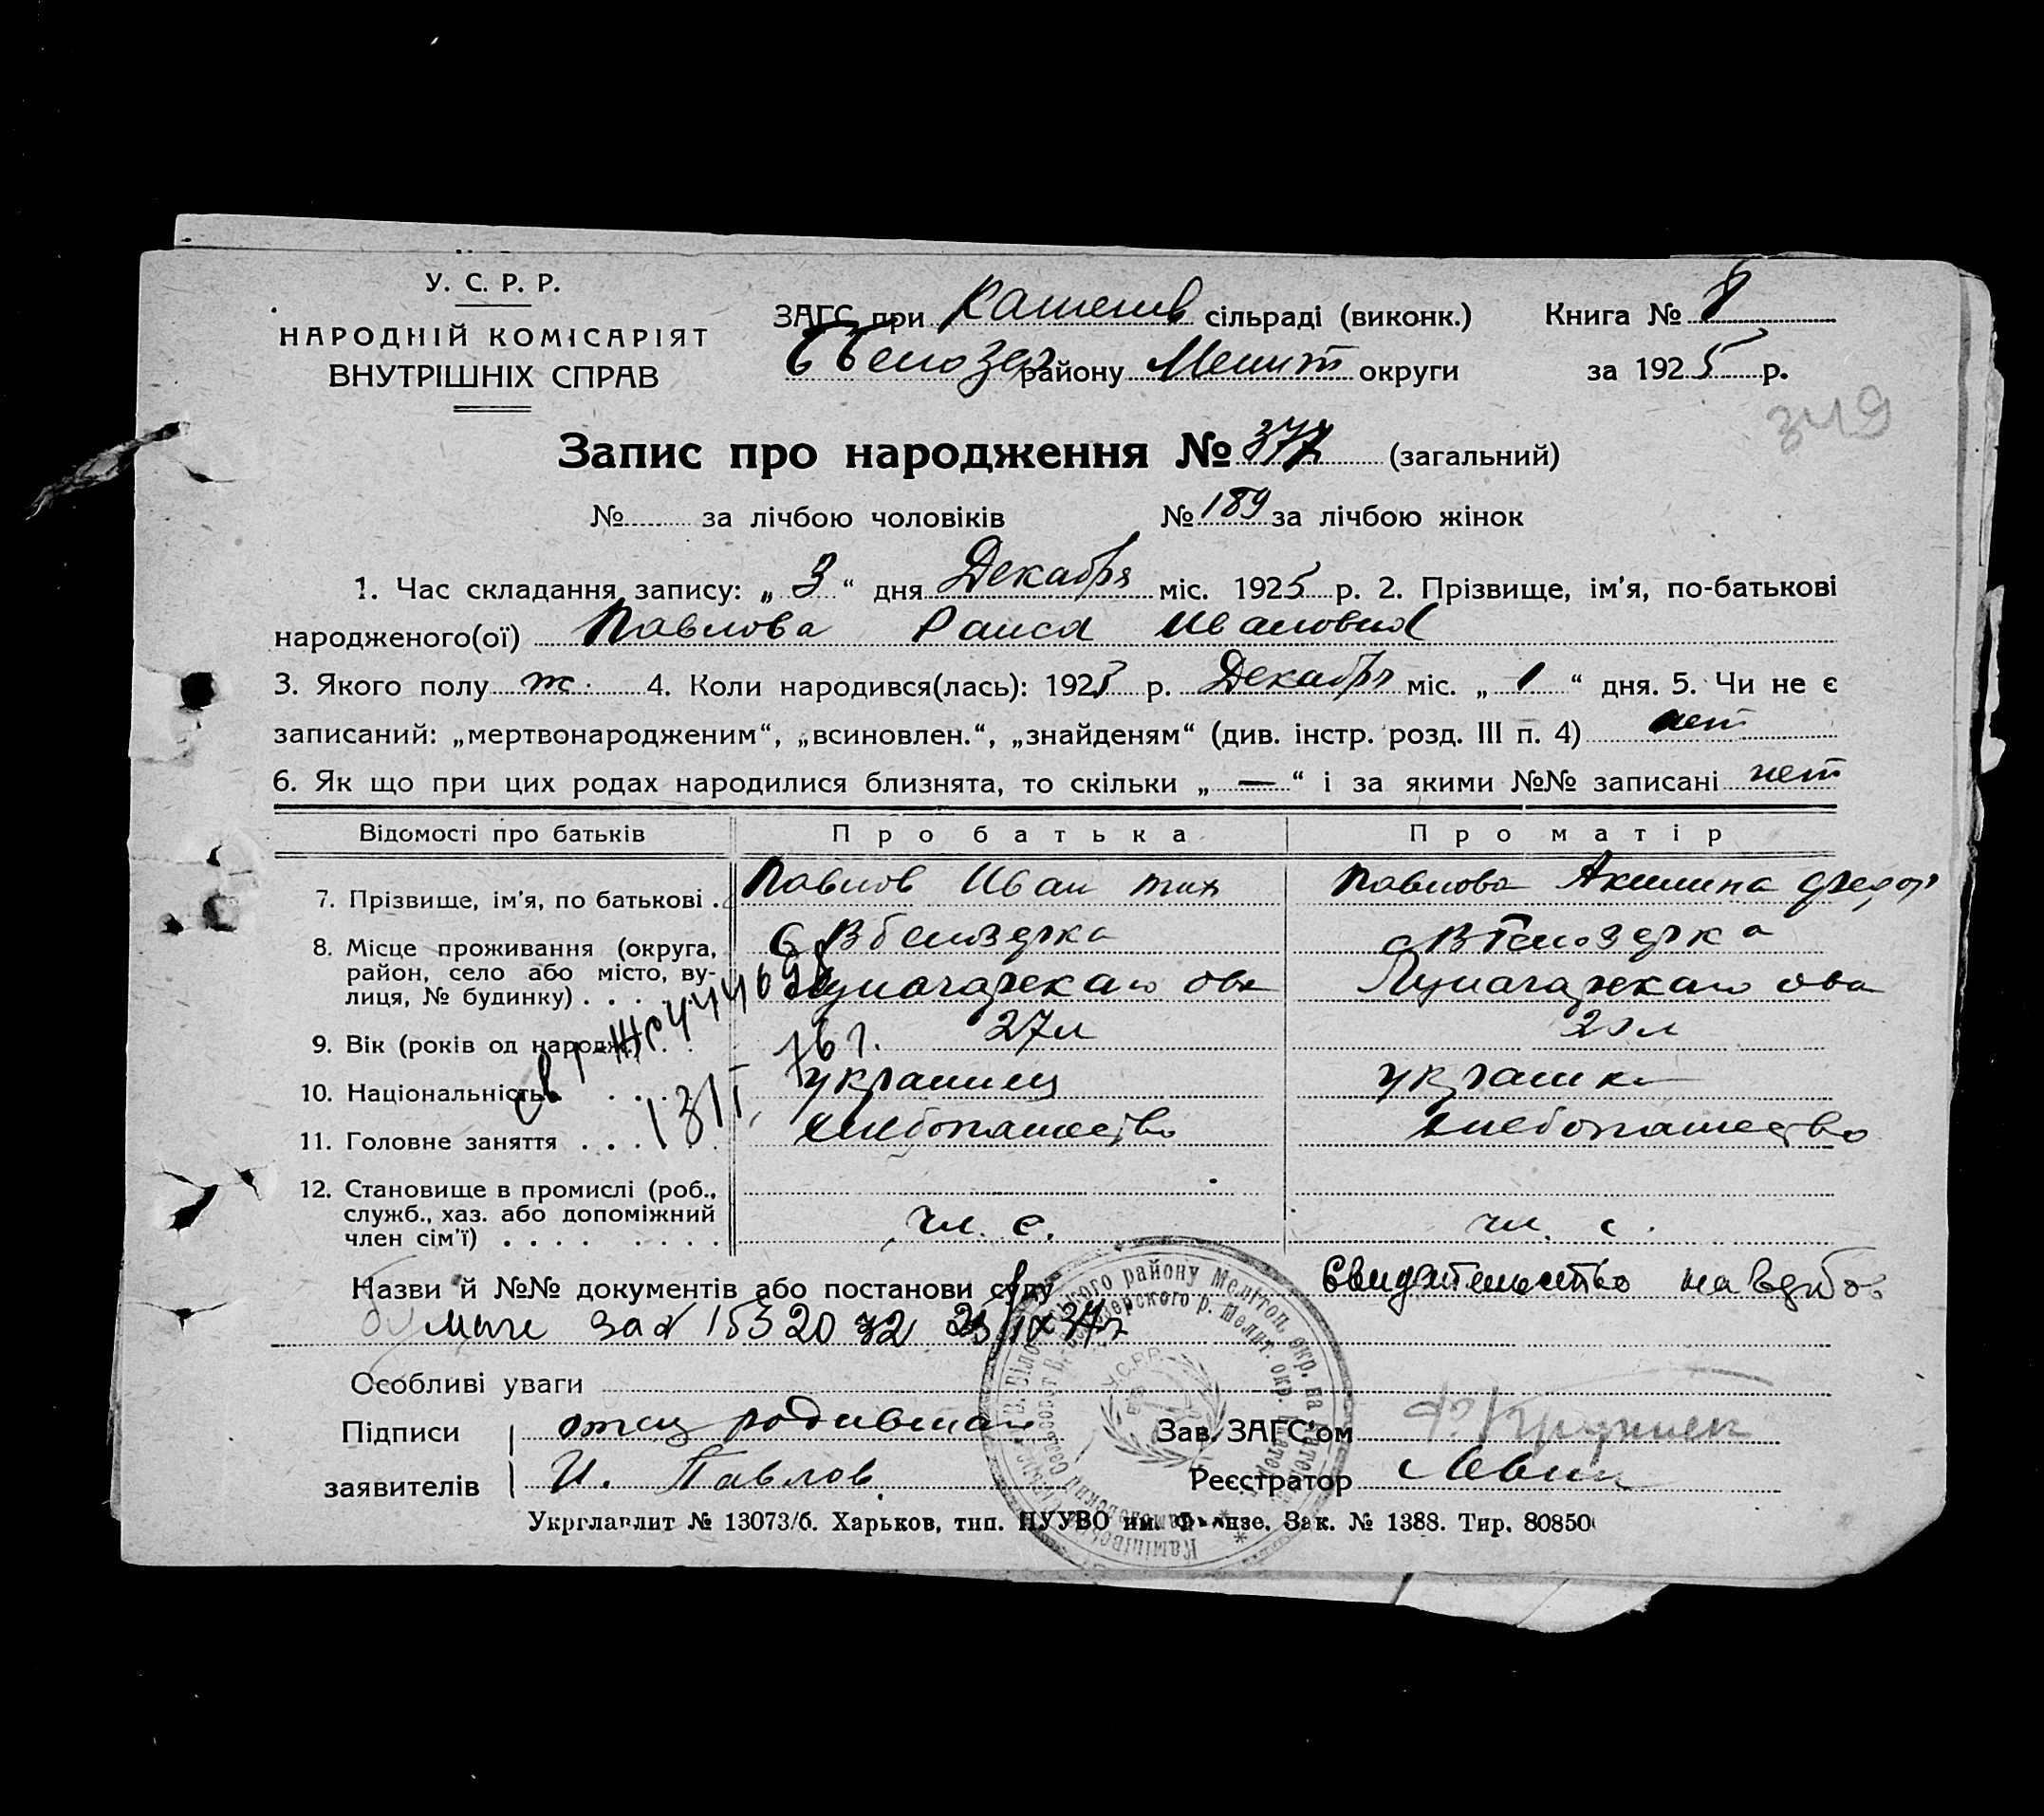 У. С. Р. Р.
НАРОДНІЙ КОМІСАРІЯТ
ВНУТРІШНІХ СПРАВ
ЗАГС при Каменив сільраді (виконк.)
Ббелозер району Мелит округи
Книга № 8
за 1925 р.
349
Запис про народження № 377 (загальний)
№ за лічбою чоловіків № 189 за лічбою жінок
1. Час складання запису: „ 3 “ дня Декабря міс. 1925 р. 2. Прізвище, ім'я, по-батькові
народженого(ої) Павлова Раиса Ивановна
3. Якого полу ж. 4. Коли народився(лась): 1925 р. Декабря міс. „ 1 “ дня. 5. Чи не є
записаний: „мертвонародженим“, „всиновлен.“, „знайденям“ (див. інстр. розд. III п. 4) нет
6. Як що при цих родах народилися близнята, то скільки „ — “ і за якими №№ записані нет
Відомості про батьків Про батька Про матір
7. Прізвище, ім'я, по батькові . Павлов Иван тих Павлова Акилина Федор
8. Місце проживання (округа, район, село або місто, вулиця, № будинку) . . . с Вбелозерка
с Вбелозерка
Луначарскаго Луначарскаго
9. Вік (років од народж.) . . 27л
10. Національність . . . украинец украинка
11. Головне заняття . . . хлебопашество хлебопашество
131
12. Становище в промислі (роб., служб., хаз. або допоміжний член сім'ї) . . . . . . . . чл. с. чл. с.
Назви й №№ документів або постанови суду Свидетельство
Особливі уваги
Підписи отец родившая
заявителів И. Павлов.
Зав. ЗАГС'ом
Реєстратор Левин
Укрглавліт № 13073/б. Харьков, тип. ПУУВО им. Фрунзе. Зак. № 1388. Тир. 80850